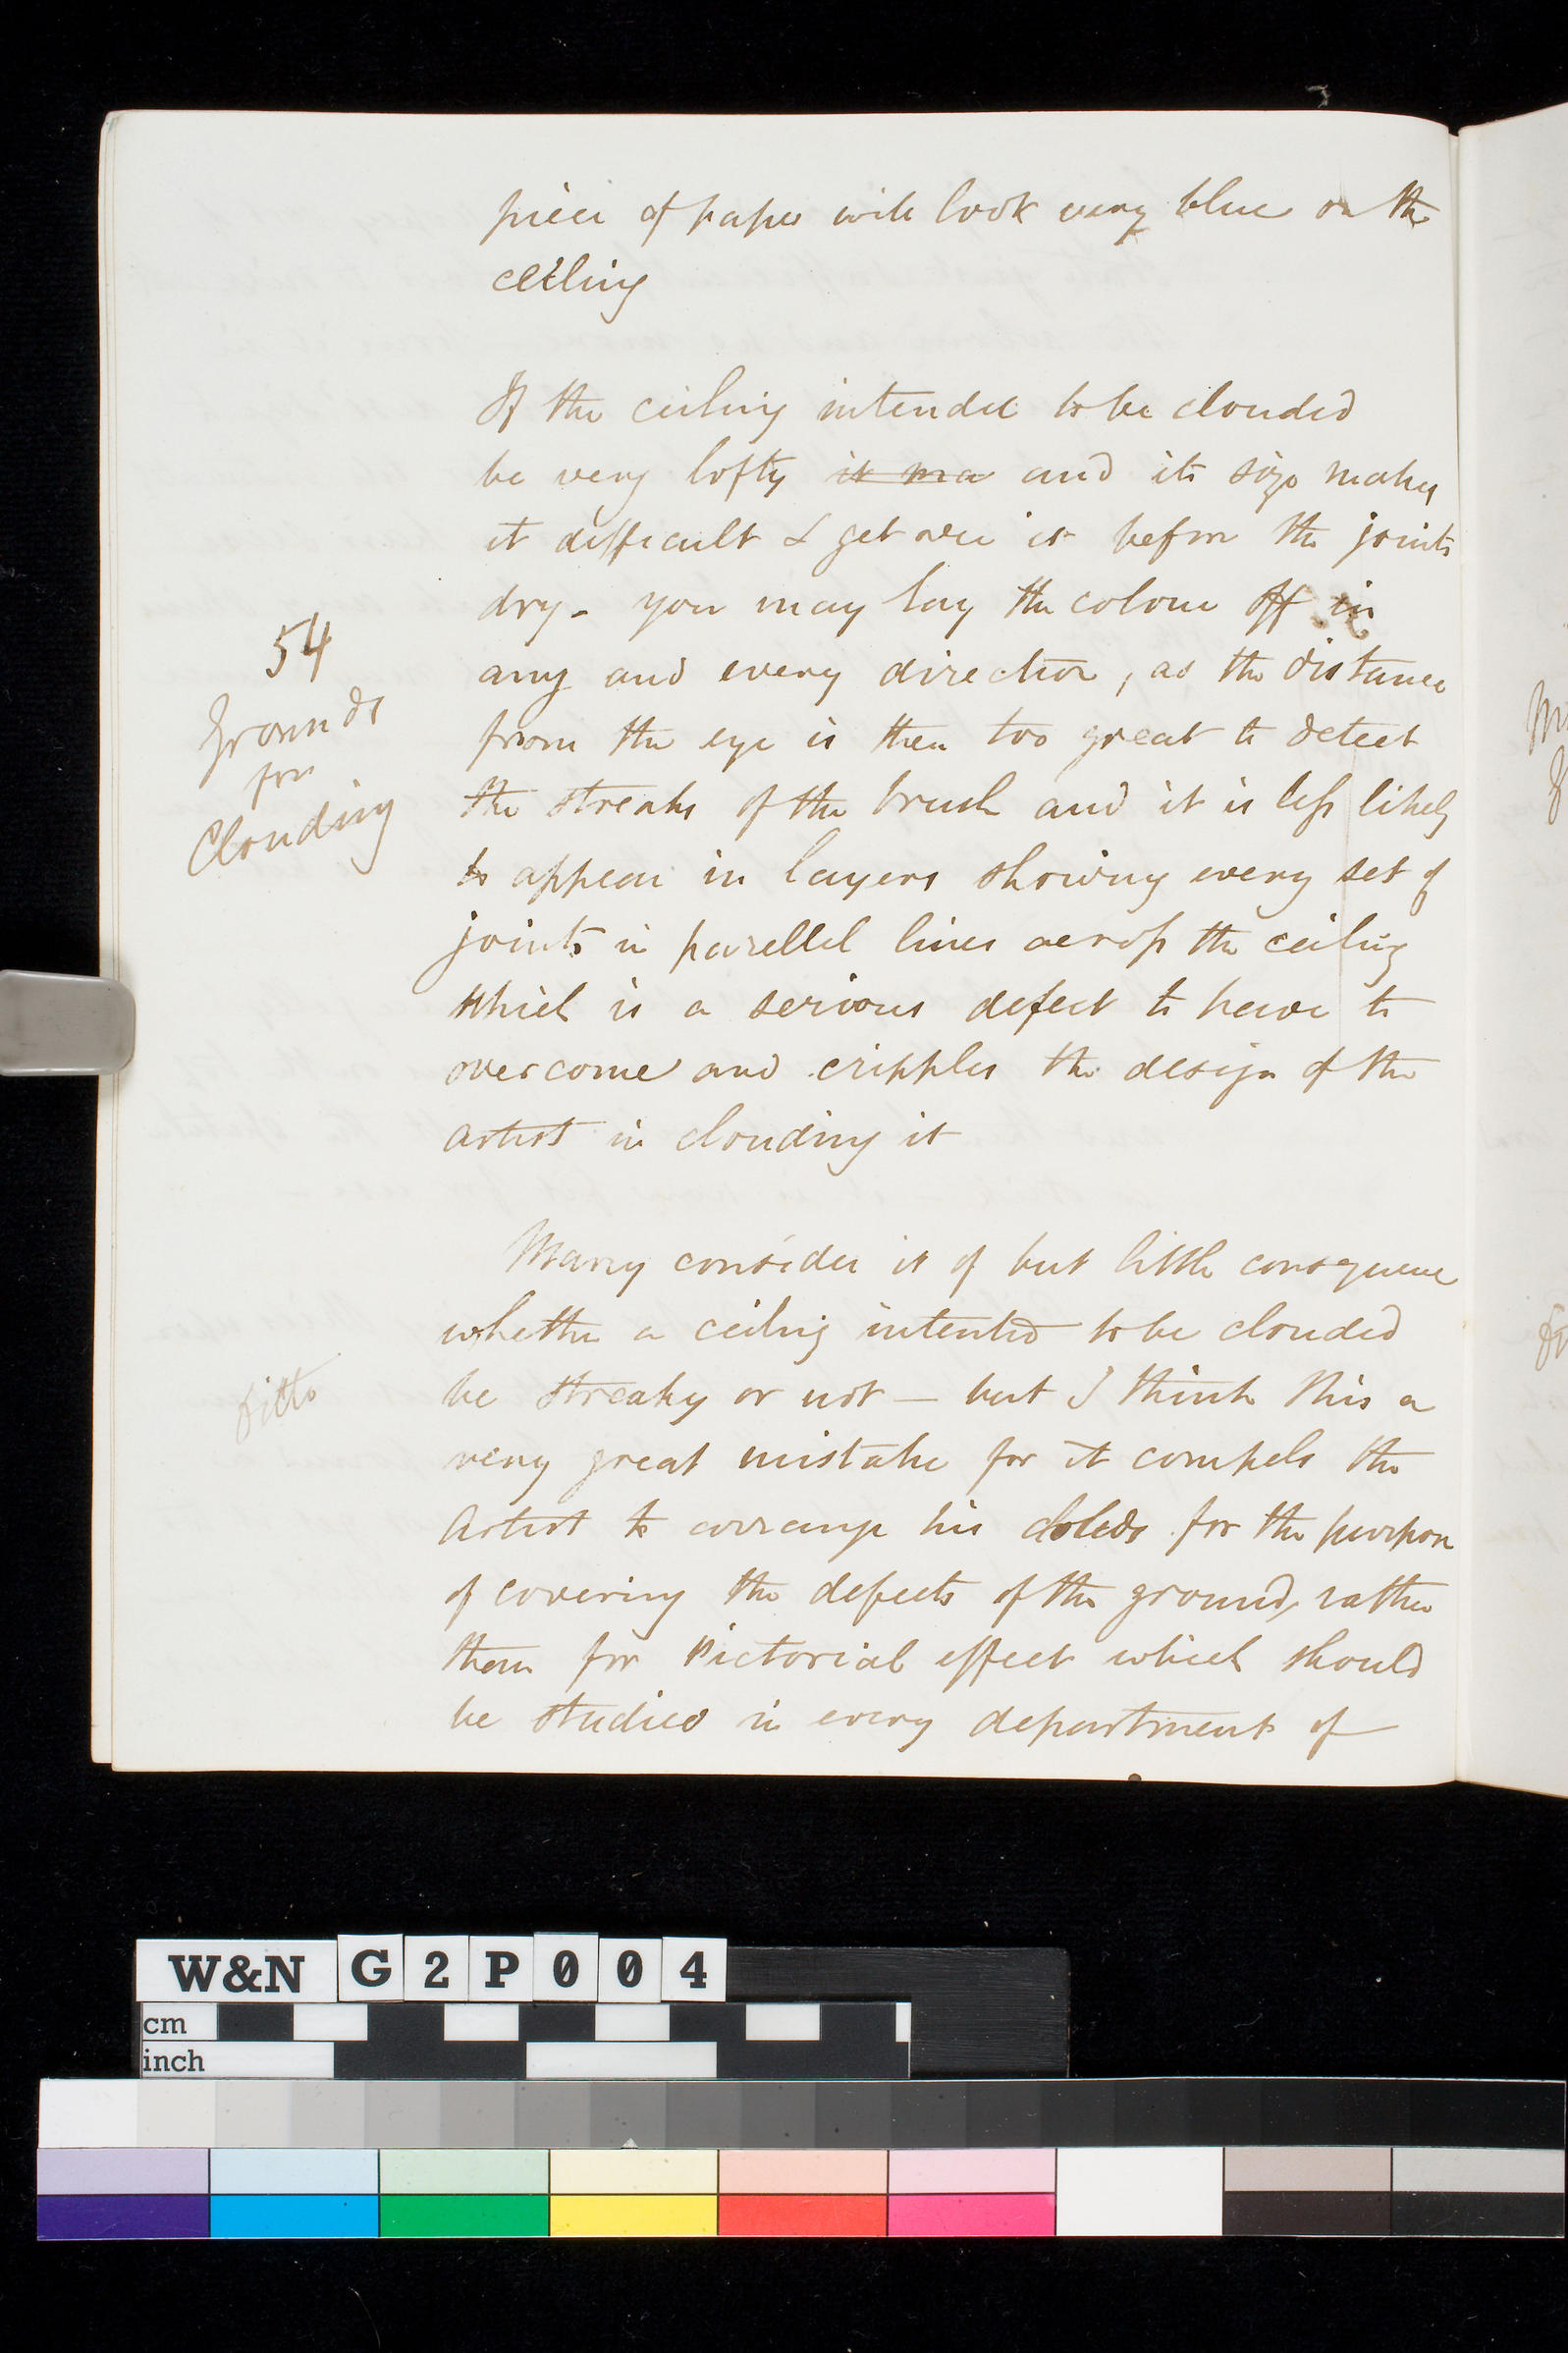 piece of paper will look very blue on the
ceiling
If the ceiling intended to be clouded
be very lofty it ma and its size makes
it difficult & get over it before the joints
dry - you may lay the colour off in
any and every direction, as the distance
from the eye is then too great to detect
the streaks of the brush and it is less likely
to appear in layers showing every set of
joints in parellel lines across the ceiling
which is a serious defect to have to
overcome and cripples the design of the
artist in clouding it
54
Grounds
for
Clouding
Many consider it of but little consequence
whether a ceiling intented to be clouded
be streaky or not — but I think this a
very great mistake for it compels the
Artist to arrange his clouds for the purpose
of covering the defects of the ground, rather
than for Pictorial effect which should
be studied in every department of
ditto
W&N G2P004
cm
inch